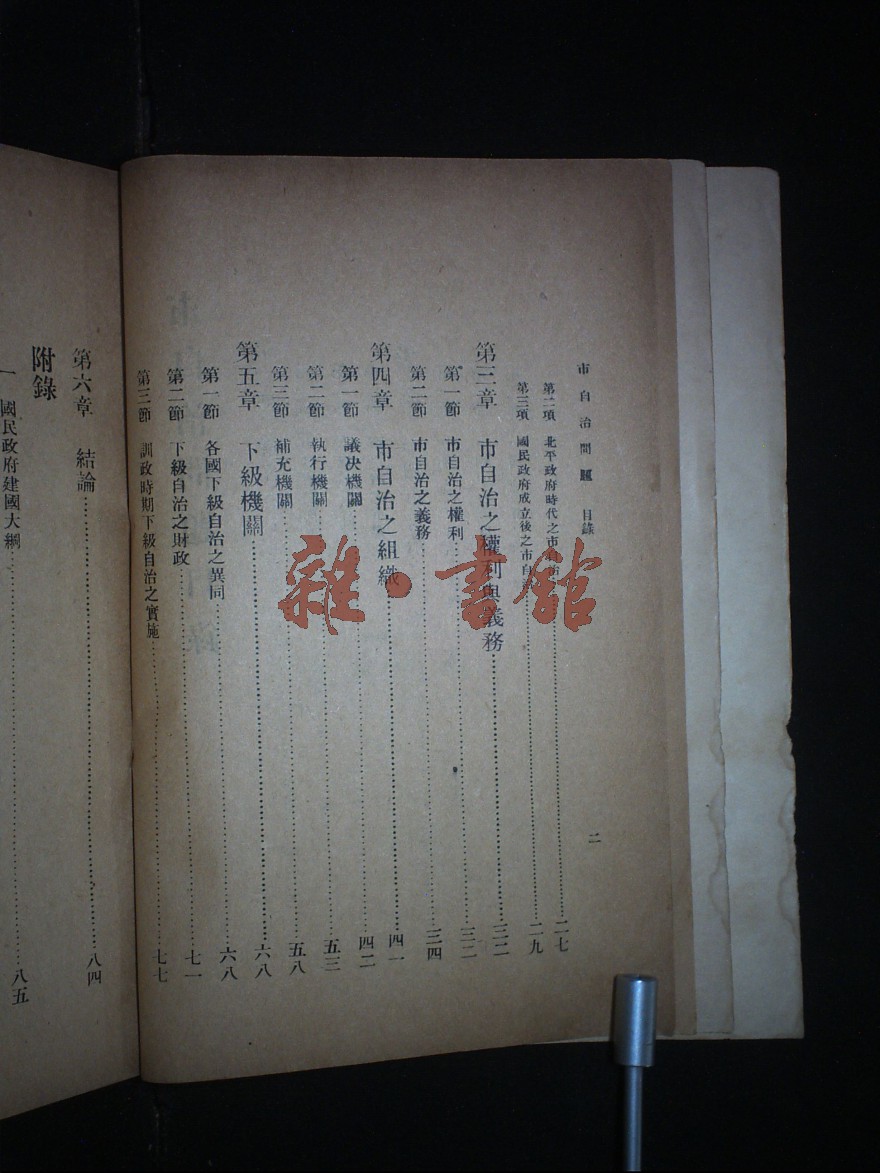 市自治問題 目錄
二
第二項 北平政府時代之市自治 二七
第三項 國民政府成立後之市自 二九
第三章 市自治之權利與義務 三二
第一節 市自治之權利 三二
第二節 市自治之義務 三四
第四章 市自治之組織 四一
第一節 議决機關 四二
第二節 執行機關 五三
第三節 補充機關 五八
第五章 下級機關 六八
第一節 各國下級自治之異同 六八
第二節 下級自治之財政 七一
第三節 訓政時期下級自治之實施 七七
第六章 結論 八四
附錄
一 國民政府建國大綱 八五
雜·書館